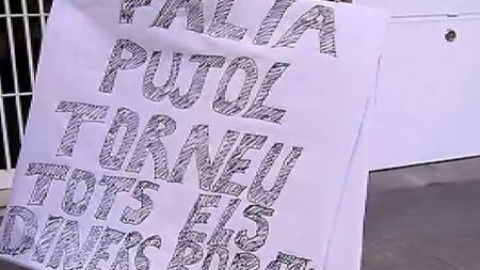 FALTA
PUJOL
TORNEU
TOTS ELS
DINERS